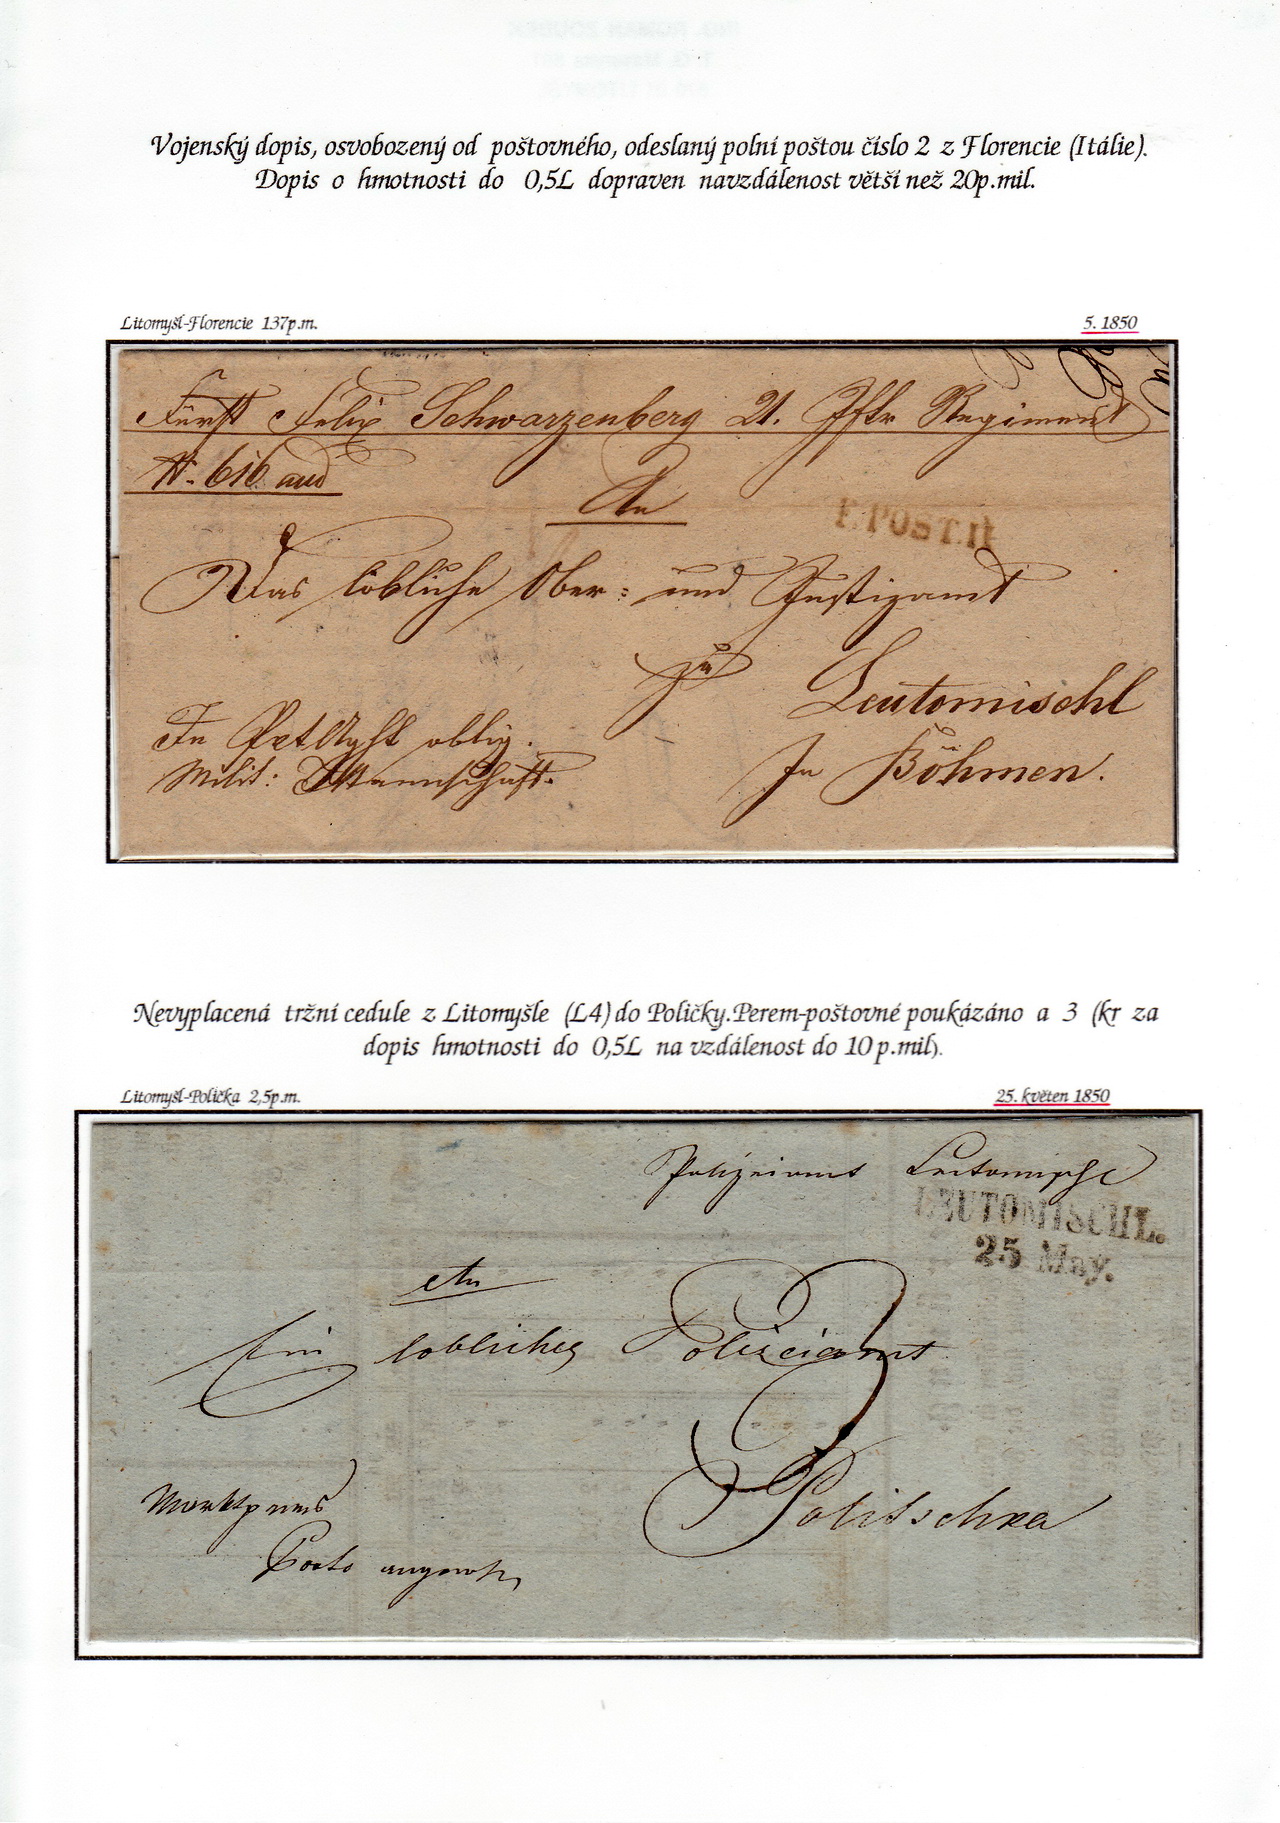 Vojenský dopis, osvobozený od poštovného, odeslaný polní poštou číslo 2 z Florencie (Itálie).
Dopis o hmotnosti do 0,5L dopraven navzdálenost větší než 20p.mil.
Litomyšl-Florencie 137p.m.
5. 1850
Fürst Felix Schwarzenberg 21. Regiment
N. 616
An
F. POST. II
Das löbliche Ober- und Justizamt
zu
Leutomischl
In Böhmen.
In oblig.
Milit:
Nevyplacená tržní cedule z Litomyšle (L4) do Poličky. Perem-poštovné poukázáno a 3 (kr za
dopis hmotnosti do 0,5L na vzdálenost do 10 p.mil).
Litomyšl-Polička 2,5p.m.
25. květen 1850
Polizeiamt Leitomischl
LEUTOMISCHL.
25 May.
An
Ein löbliches Polizeiamt
3
Politschka
Marktpreis
Porto